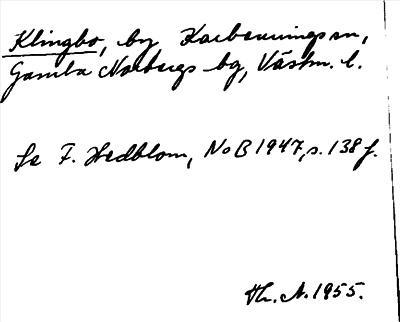 Klingbo, by Karbennings sn,
Gamla Norbergs bg, Västm. l.
Se F. Hedblom, NoB 1947, s. 138 f.
Th. A. 1955.